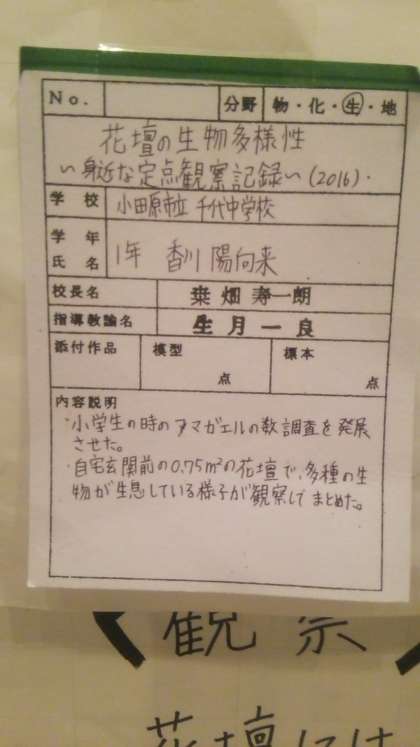 No. 分野 物・化・生・地
花壇の生物多様性
~身近な定点観察記録~(2016).
学校 小田原市立 千代中学校
学年
氏名 1年 香川 陽向来
校長名 桒畑寿一朗
指導教諭名 生月一良
添付作品 模型 点 標本 点
内容説明
・小学生の時のアマガエルの数調査を発展
させた。
・自宅玄関前の0.75m²の花壇で、多種の生
物が生息している様子が観察してまとめた。
観察
花壇には